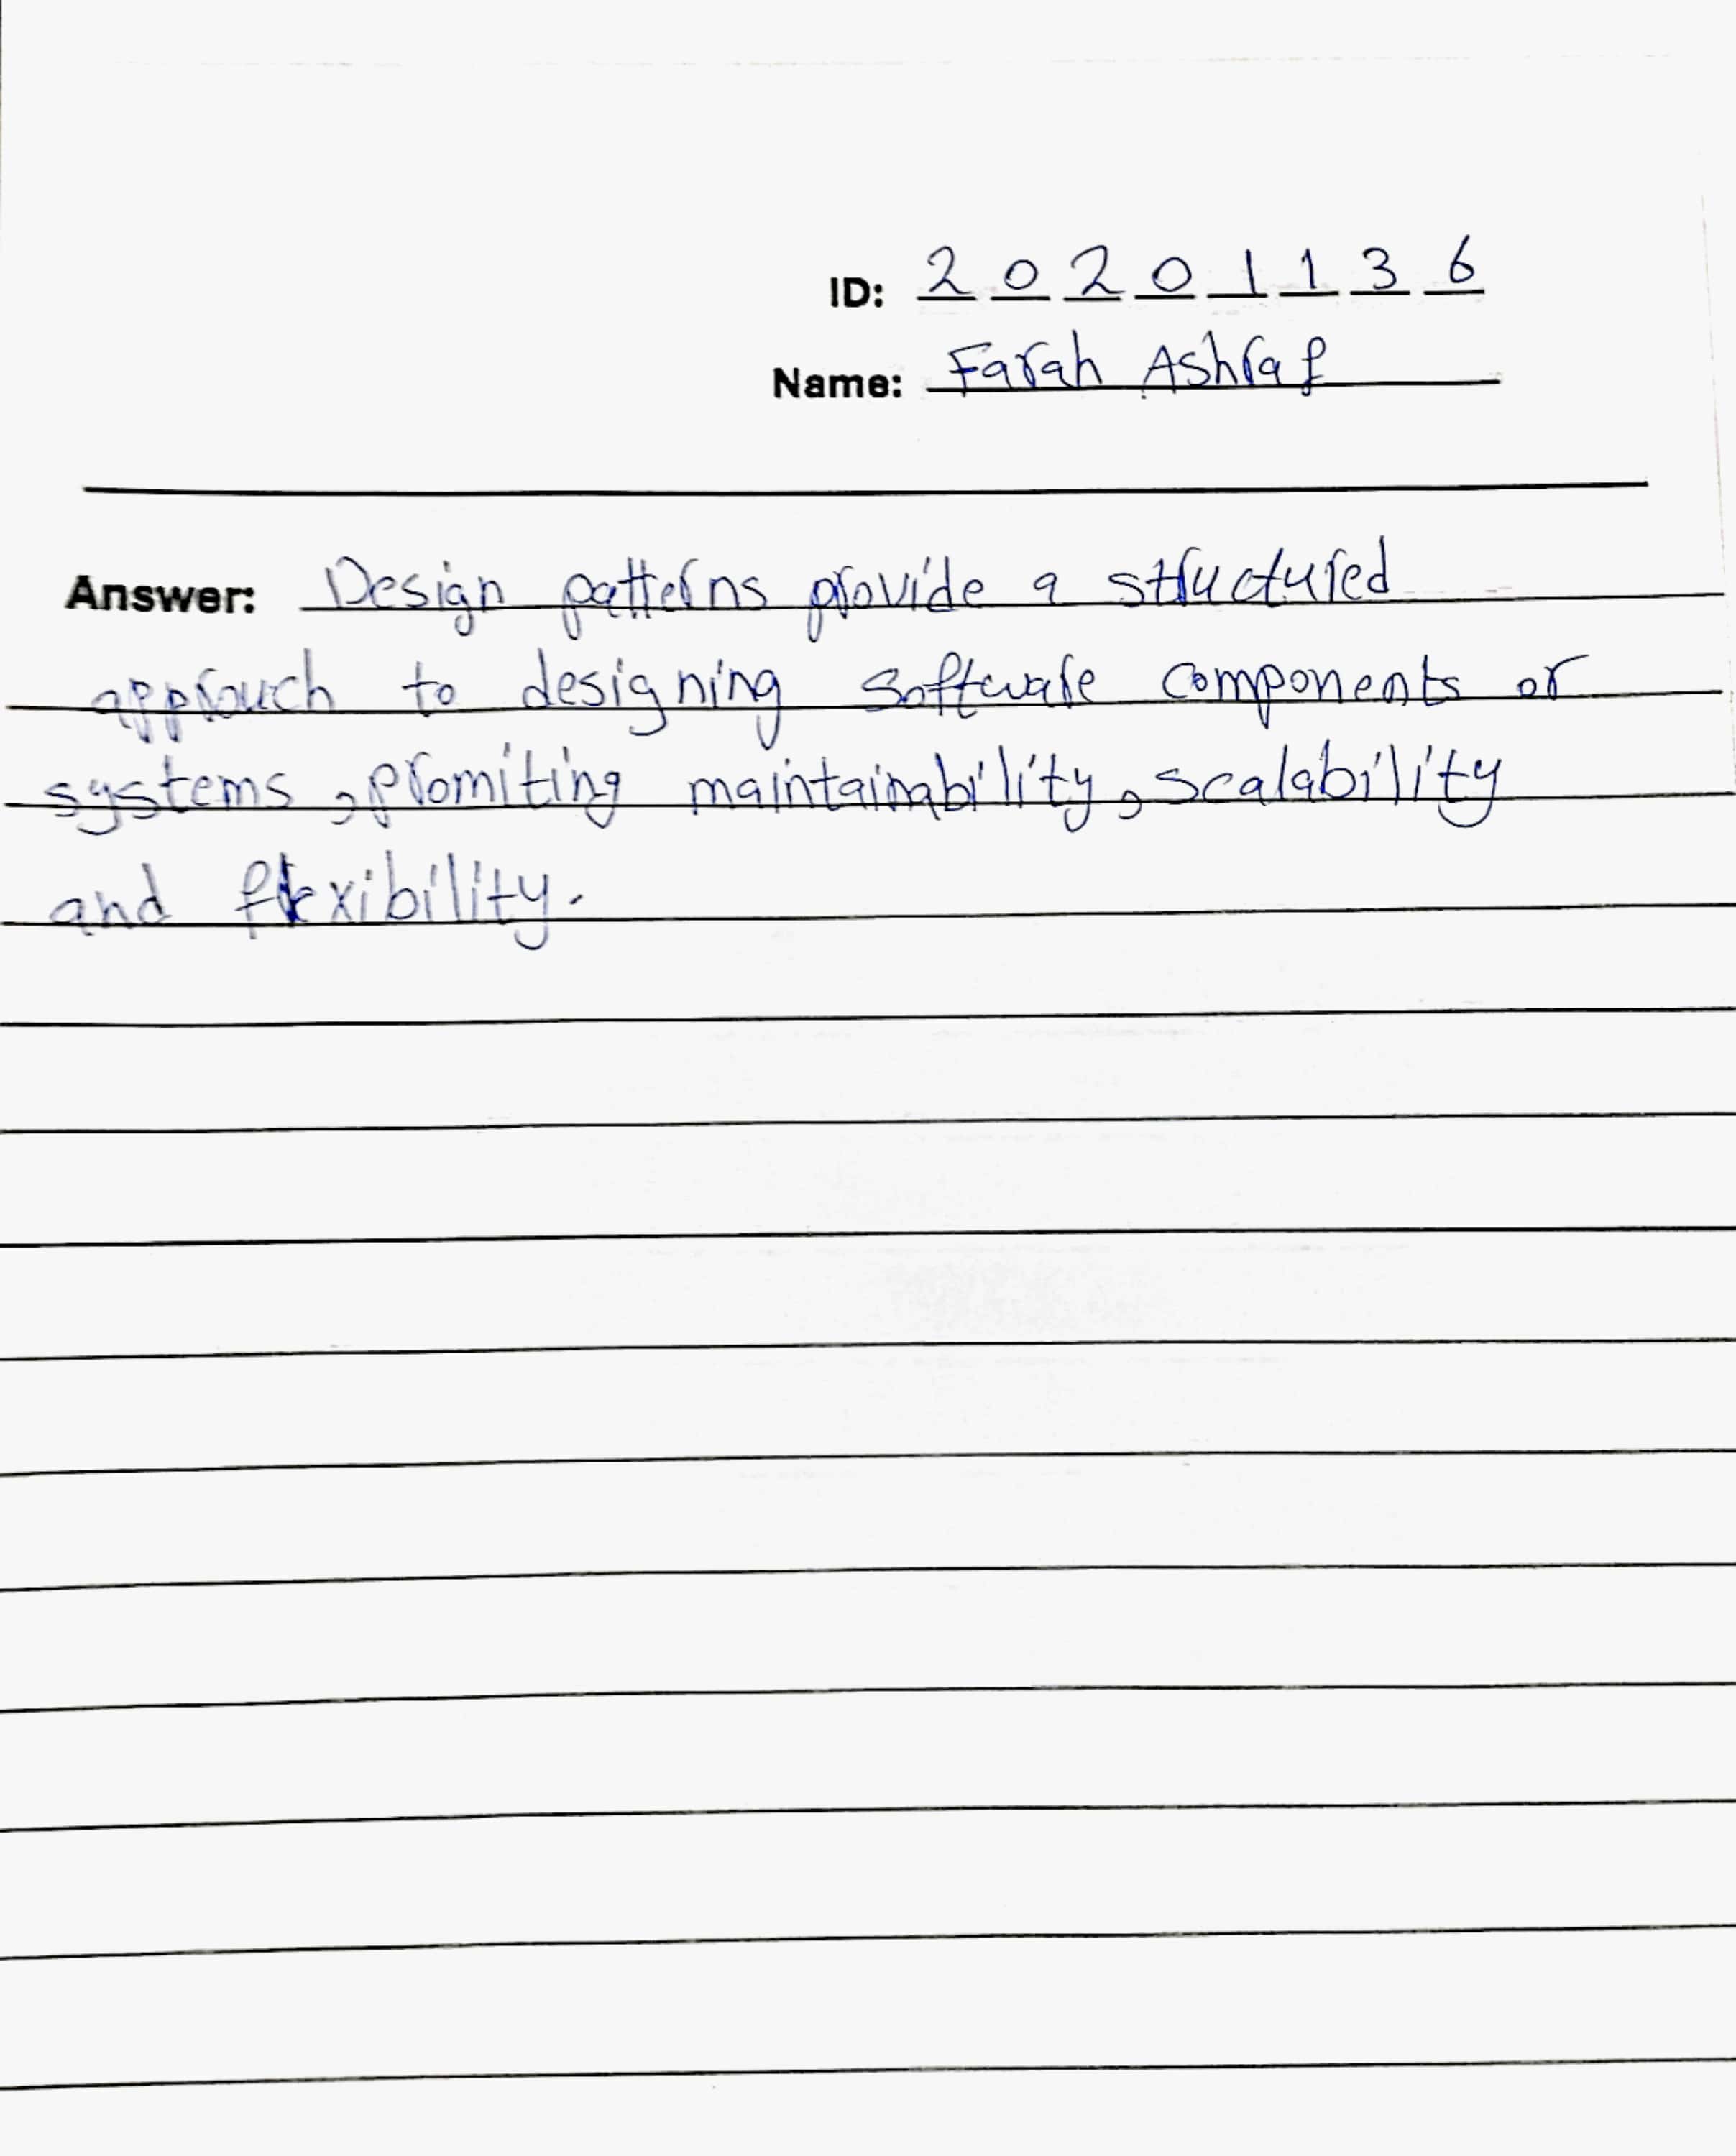 ID: 2 0 2 0 1 1 3 6
Name: Farah Ashraf
Answer: Design patterns provide a structured
approuch to designing software components or
systems, promiting maintainability, scalability
and flexibility.